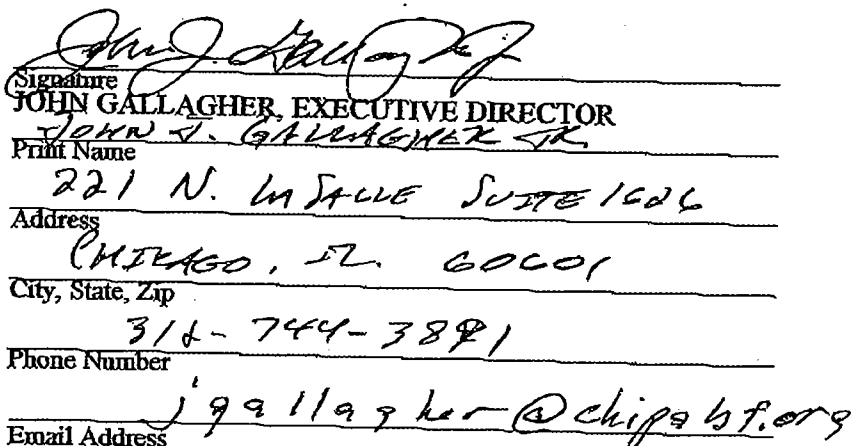 John J. Gallagher Jr
Signature
JOHN GALLAGHER, EXECUTIVE DIRECTOR
JOHN J. GALLAGHER JR.
Print Name
221 N. LASALLE SUITE 1626
Address
CHICAGO, IL. 60601
City, State, Zip
312-744-3891
Phone Number
jgallagher@chipabf.org
Email Address